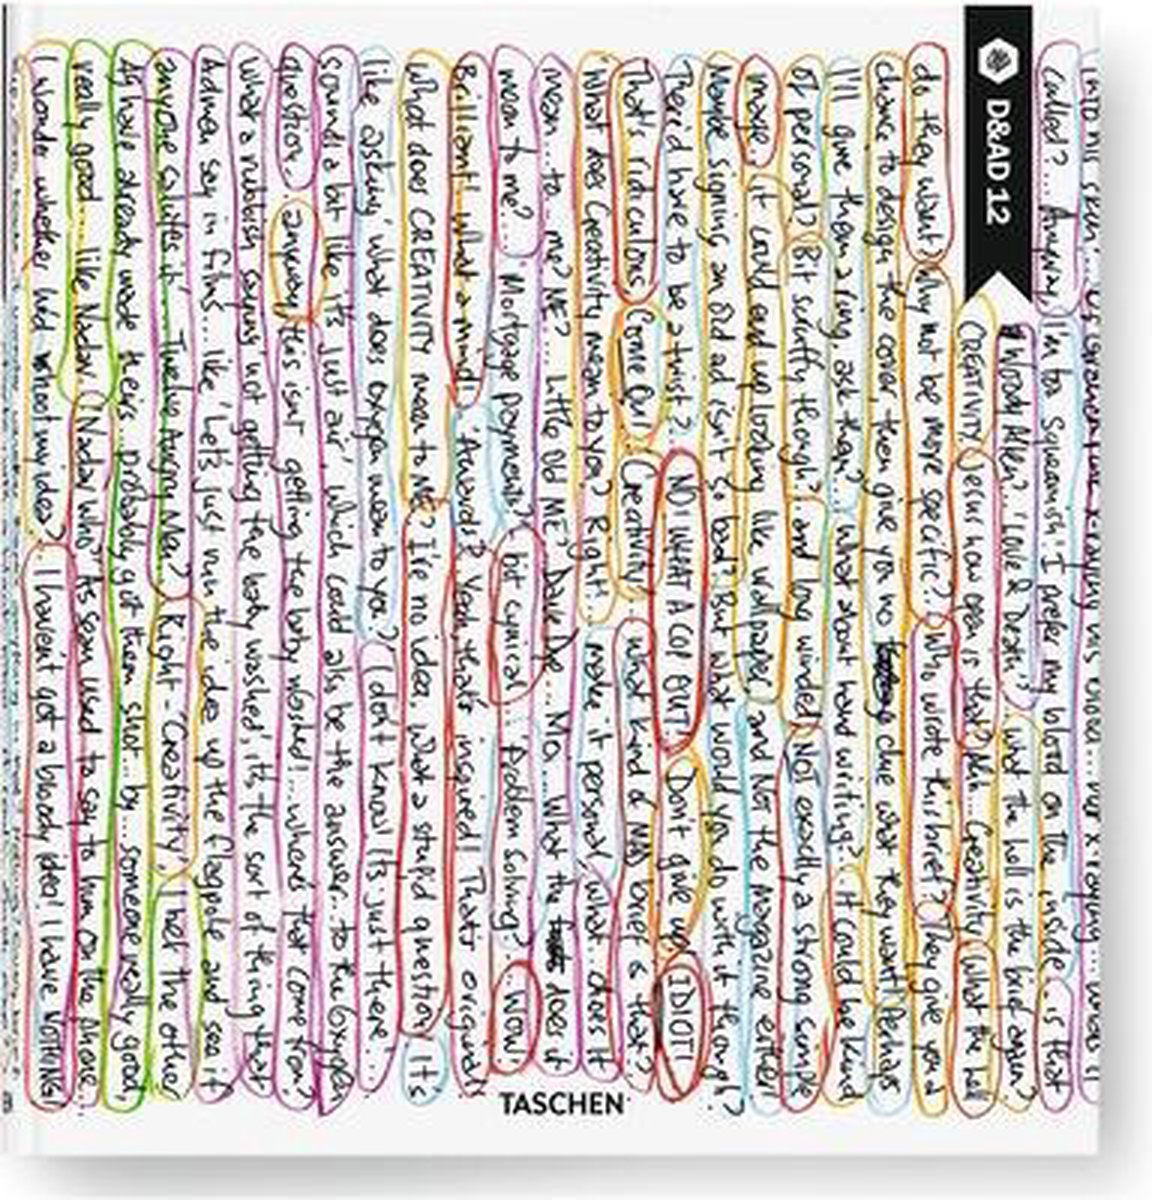 D&AD 12
called?... Anyway, I'm too Squeamish! I prefer my blood on the inside. is that
Woody Allen? 'Love & Death'. what the hell is the brief again?
CREATIVITY. Jesus how open is that? Mmh... Creativity. What the hell
do they want? Why not be more specific? Who wrote this brief? They give you a
chance to design the cover, then give you no clue what they want! Perhaps
I'll give them a ring, ask them? ... what about hand writing? It could be kind
of personal? Bit scruffy, though? and long winded! NOT exactly a strong simple
image. it could end up looking like wallpaper. and Not the Magazine either!
Maybe signing an old ad isn't so bad? But what would you do with it though?
There'd have to be a twist? NO! WHAT A COP OUT! Don't give up! IDIOT!
That's ridiculous Come On! Creativity... what kind of MAD brief is that?
'What does Creativity mean to you? Right... make it personal, what does it
mean... to... me? ME?.... Little Old ME? Dave Dye... Mm... What the does it
mean to me?... Mortgage payments? bit cynical. Problem solving? WOW!
Brilliant! what a mind! Awards? Yeah, that's inspired! That's original!
What does CREATIVITY mean to ME? I've no idea, what a stupid question! It's
like asking 'what does oxygen mean to you?' I don't know! It's just there...
sounds a bit like 'It's just air', which could also be the answer... to the Oxygen
question. anyway this isn't getting the baby washed!... where's that come from?
What a rubbish saying, 'not getting the baby washed', it's the sort of thing that
Admen say in films... like 'Let's just run the idea up the flagpole and see if
anyone salutes it'... Twelve Angry Men? Right - 'Creativity'. I bet the other
have already made theirs. probably got them shot... by... someone really good,
really good... like Nadav. (Nadav who? As Sean used to say to him on the phone...
I wonder whether shoot my idea? I haven't got a bloody idea! I have NOTHING!
TASCHEN